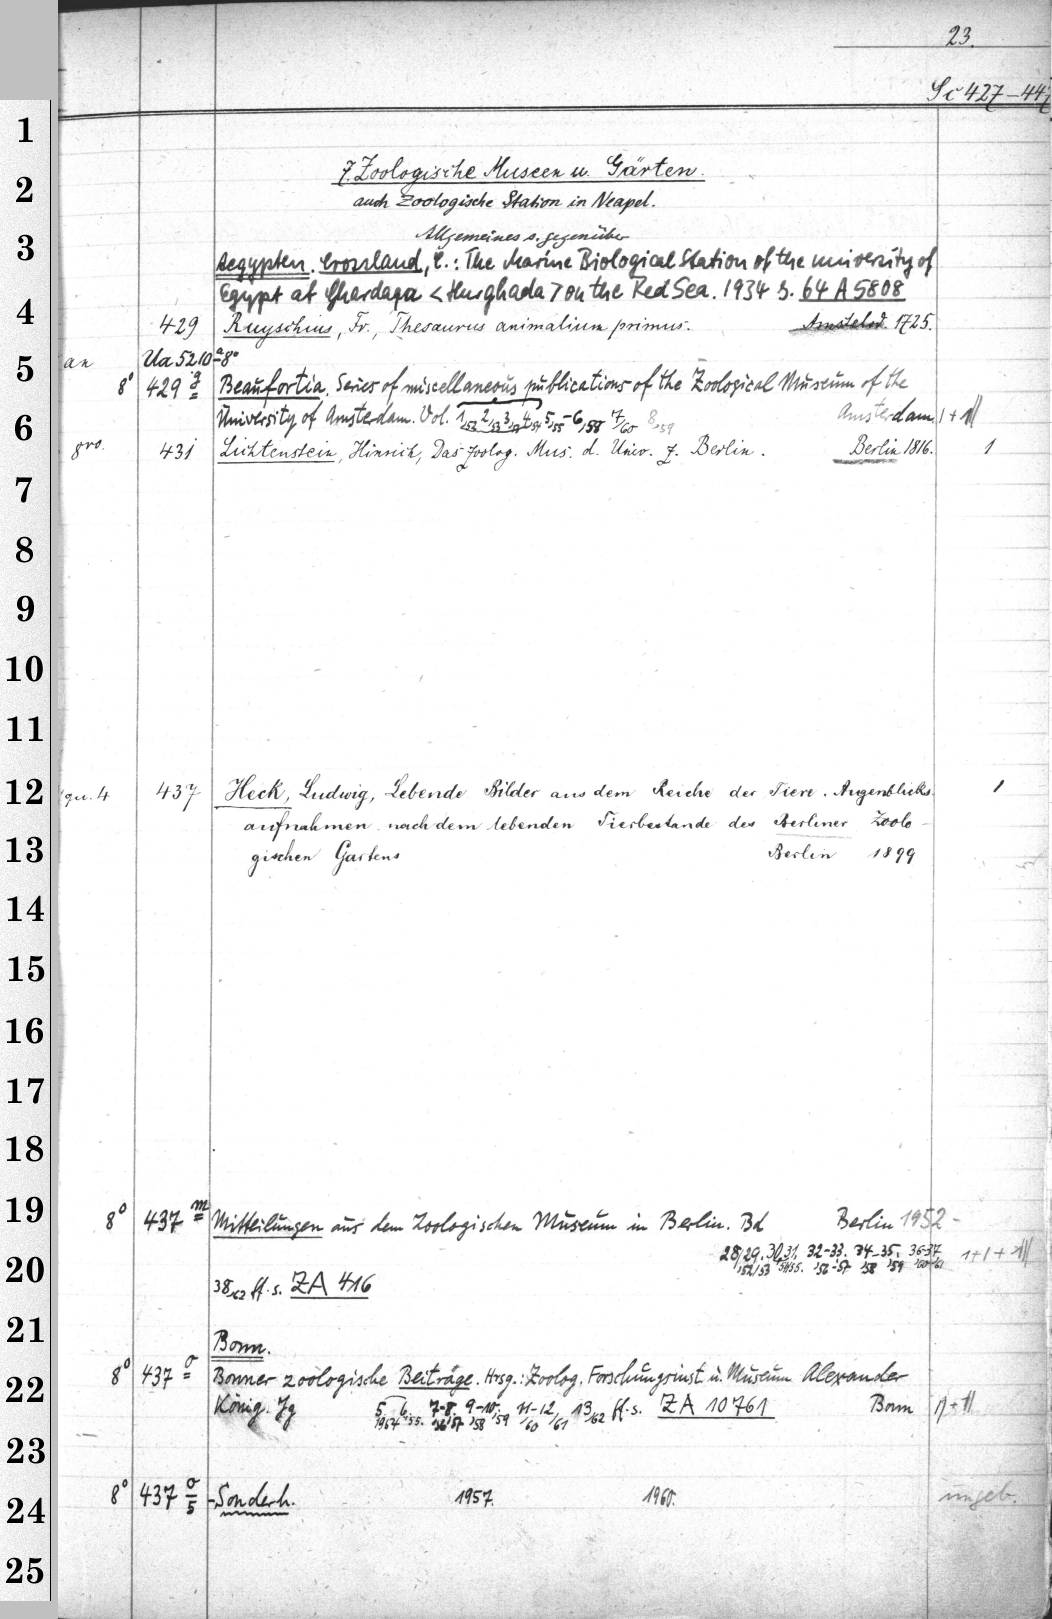 23.
Sc 427-447
1
2
3
4
5
6
7
8
9
10
11
12
13
14
15
16
17
18
19
20
21
22
23
24
25
7. Zoologische Museen u. Gärten.
auch Zoologische Station in Neapel.
Allgemeines s. gegenüber
Aegypten. Crossland, C.: The Marine Biological Station of the university of
Egypt at Ghardaqa <Hurghada> on the Red Sea. 1934 s. 64 A 5808
429 Ruyschius, Fr., Thesaurus animalium primus. Amstelod. 1725.
an Ua 5210 a 8°
8° 429 g Beaufortia. Series of miscellaneous publications of the Zoological Museum of the
University of Amsterdam. Vol. 1, 2, 3, 4, 5, -6, 7/60 8,59 Amsterdam 1+1
8vo. 431 Lichtenstein, Hinrich, Das zoolog. Mus. d. Univ. z. Berlin. Berlin 1816. 1
qu. 4 437 Heck, Ludwig, Lebende Bilder aus dem Reiche der Tiere. Augenblicks-
aufnahmen nach dem lebenden Tierbestande des Berliner Zoolo-
gischen Gartens Berlin 1899
1
8° 437 m Mitteilungen aus dem Zoologischen Museum in Berlin. Bd Berlin 1952-
28/29, 30,31, 32-33. 34-35. 36-37 1+1+1
'52/53 '54/55. '56-'57 '58 '59 '60-'61
38,62 ff. s. ZA 416
Bonn.
8° 437 o Bonner zoologische Beiträge. Hrsg.: Zoolog. Forschungsinst. u. Museum Alexander
König. Jg 5 6. 7-8. 9-10. 11-12/61 13/62 ff. s. ZA 10761 Bonn
1954 '55. '56'57 '58 '59 /60
8° 437 o/5 -Sonderh. 1957. 1960. ungeb.